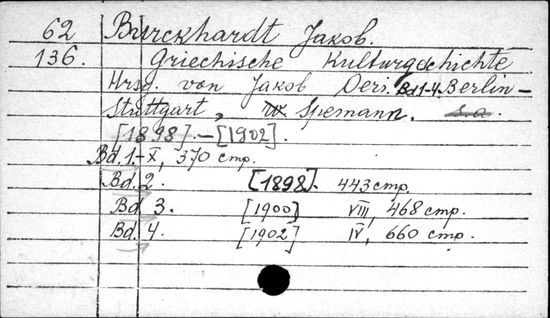 62 Burckhardt Jakob.
136. Griechische Kulturgeschichte
Hrsg. von Jakob Oeri. Bd 1-4. Berlin-
Stuttgart, Spemann. s.a.
[1898].-[1902].
Bd. 1.-X, 370 стр.
Bd. 2. [1898]. 443 стр.
Bd 3. [1900] VIII, 468 стр.
Bd. 4. [1902] IV, 660 стр.